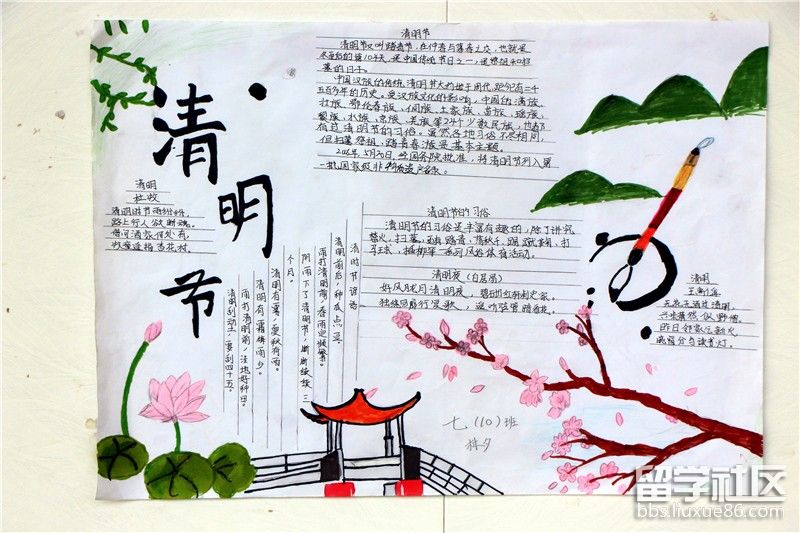 清明节
清明节
清明节又叫踏青节，在仲春与暮春之交，也就是
冬至后的第104天，是中国传统节日之一，也是祭祖和扫
墓的日子。
中国汉族的传统清明节大约始于周代，距今已有二千
五百多年的历史。受汉族文化的影响，中国的满族、
壮族、鄂伦春族、侗族、土家族、苗族、瑶族、
黎族、水族、京族、羌族等24个少数民族，也都
有过清明节的习俗。虽然各地习俗不尽相同，
但扫墓祭祖、踏青春游是基本主题。
2006年5月20日，经国务院批准，将清明节列入第
一批国家级非物质遗产名录。
清明
杜牧
清明时节雨纷纷，
路上行人欲断魂。
借问酒家何处有，
牧童遥指杏花村。
清明节的习俗
清明节的习俗是丰富有趣的，除了讲究
禁火、扫墓，还有踏青、荡秋千、蹴鞠、打
马球、插柳等一系列风俗体育活动。
清明夜（白居易）
好风胧月清明夜，碧砌红轩刺史家。
独绕回廊行复歇，遥听弦管暗看花。
清明
王禹偁
无花无酒过清明，
兴味萧然似野僧。
昨日邻家乞新火，
晓窗分与读书灯。
清明时节谚语
清明前后，种瓜点豆。
雨打清明前，春雨定频繁。
阴雨下了清明节，断断续续三
个月。
清明有雾，夏秋有雨。
清明有霜梅雨少。
雨打清明前，洼地好种田。
清明刮动土，要刮四十五。
七（10）班
留学社区
bbs.liuxue86.com